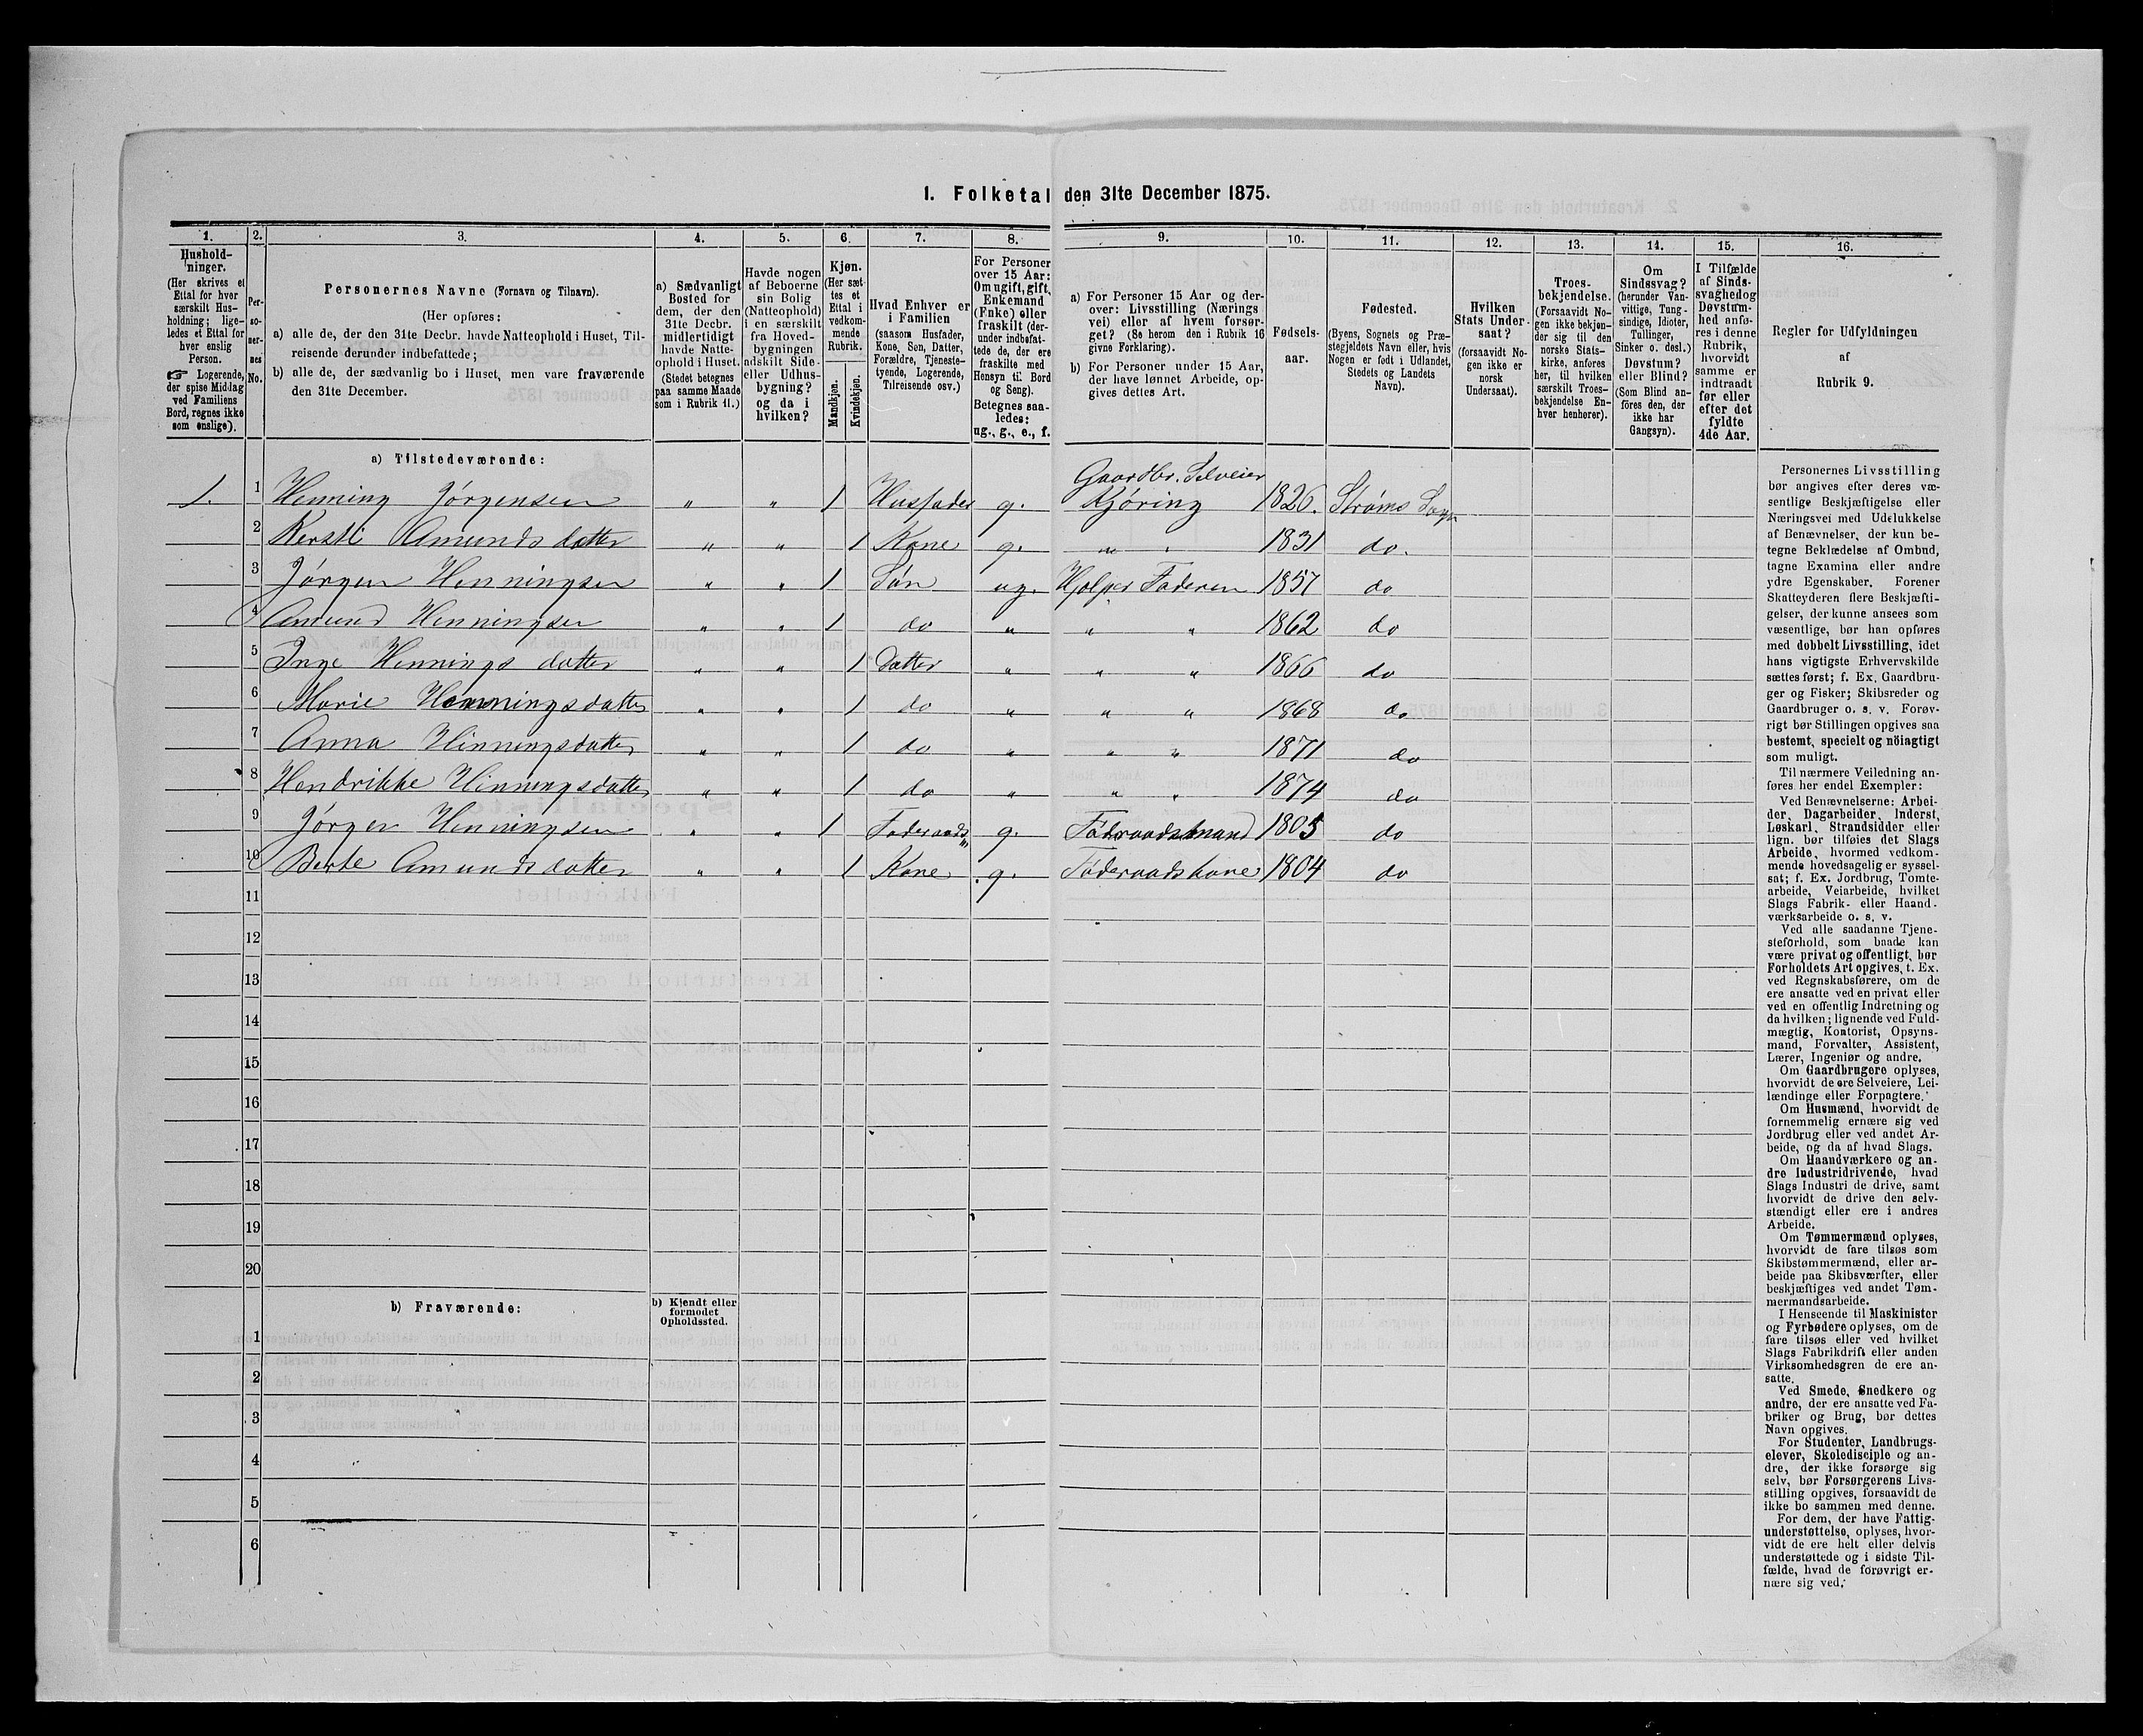 1. Folketal den 31te December 1875.
1.
Hushold-
ninger.
(Her skrives et
Ettal for hver
særskilt Hus-
holdning; lige-
ledes et Ettal for
hver enslig
Person.
☞ Logerende,
der spise Middag
ved Familiens
Bord, regnes ikke
som enslige).
2.
Per-
so-
ner-
nes
No.
3.
Personernes Navne (Fornavn og Tilnavn).
(Her opføres:
a) alle de, der den 31te Decbr. havde Natteophold i Huset, Til-
reisende derunder indbefattede;
b) alle de, der sædvanlig bo i Huset, men vare fraværende
den 31te December.
4.
a) Sædvanligt
Bosted for
dem, der den
31te Decbr.
midlertidigt
havde Natte-
ophold i Huset.
(Stedet betegnes
paa samme Maade
som i Rubrik 11.)
5.
Havde nogen
af Beboerne
sin Bolig
(Natteophold)
i en særskilt
fra Hoved-
bygningen
adskilt Side-
eller Udhus-
bygning?
og da i
hvilken?
6.
Kjøn.
(Her sæt-
tes et
Ettal i
vedkom-
mende
Rubrik.
Mandkjøn.
Kvindekjøn.
7.
Hvad Enhver er
i Familien
(saasom Husfader,
Kone, Søn, Datter,
Forældre, Tjeneste-
tyende, Logerende,
Tilreisende osv.)
8.
For Personer
over 15 Aar:
Om ugift, gift,
Enkemand
(Enke) eller
fraskilt (der-
under indbefat-
tede de, der ere
fraskilte med
Hensyn til Bord
og Seng).
Betegnes saa-
ledes:
ug., g., e., f.
9.
a) For Personer 15 Aar og der-
over: Livsstilling (Nærings
vei) eller af hvem forsør-
get? (Se herom den i Rubrik 16
givne Forklaring).
b) For Personer under 15 Aar,
der have lønnet Arbeide, op-
gives dettes Art.
10.
Fødsels-
aar.
11.
Fødested.
(Byens, Sognets og Præ-
stegjeldets Navn eller, hvis
Nogen er født i Udlandet,
Stedets og Landets
Navn).
12.
Hvilken
Stats Under-
saat?
(forsaavidt No-
gen ikke er
norsk
Undersaat).
13.
Troes-
bekjendelse.
(Forsaavidt No-
gen ikke bekjen-
der sig til den
norske Stats-
kirke, anføres
her, til hvilken
særskilt Troes-
bekjendelse En-
hver henhører).
14.
Om
Sindssvag?
(herunder Van-
vittige, Tung-
sindige, Idioter,
Tullinger,
Sinker o. desl.)
Døvstum?
eller Blind?
(Som Blind an-
føres den, der
ikke har
Gangsyn).
15.
I Tilfælde
af Sinds-
svaghed og
Døvstum-
hed anfø-
res i denne
Rubrik,
hvorvidt
samme er
indtraadt
før eller
efter det
fyldte
4de Aar.
16.
Regler for Udfyldningen
af
Rubrik 9.
a) Tilstedeværende:
1. 1 Henning Jørgensen " " 1 Husfader g. Gaardbr. Selveier Kjøring 1826. Strøms Sogn
2 Kersti Amunds datter " " 1 Kone g. " " 1831 do.
3 Jørgen Henningsen " " 1 Søn ug. Hjelper Faderen 1857 do
4 Amund Henningsen " " 1 do " " " 1862 do
5 Inge Hennings datter " " 1 Datter " " " 1866 do
6 Marie Henningsdatter " " 1 do " " " 1868 do
7 Anna Henningsdatter " " 1 do " " " 1871 do
8 Hendrikke Henningsdatter " " 1 do " " " 1874 do
9 Jørgen Henningsen " " 1 Føderaads g. Føderaadsmand 1805 do
10 Berte Amundsdatter " " 1 Kone g. Føderaadskone 1804 do
11
12
13
14
15
16
17
18
19
20
b) Fraværende:
b) Kjendt eller
formodet
Opholdssted.
1
2
3
4
5
6
Personernes Livsstilling
bør angives efter deres væ-
sentlige Beskjæftigelse eller
Næringsvei med Udelukkelse
af Benævnelser, der kun be-
tegne Beklædelse af Ombud,
tagne Examina eller andre
ydre Egenskaber. Forener
Skatteyderen flere Beskjæfti-
gelser, der kunne ansees som
væsentlige, bør han opføres
med dobbelt Livsstilling, idet
hans vigtigste Erhvervskilde
sættes først; f. Ex. Gaardbru-
ger og Fisker; Skibsreder og
Gaardbruger o. s. v. Forøv-
rigt bør Stillingen opgives saa
bestemt, specielt og nöiagtigt
som muligt.
Til nærmere Veiledning an-
føres her endel Exempler:
Ved Benævnelserne: Arbei-
der, Dagarbeider, Inderst,
Løskarl, Strandsidder eller
lign. bør tilføies det Slags
Arbeide, hvormed vedkom-
mende hovedsagelig er syssel-
sat; f. Ex. Jordbrug, Tomte-
arbeide, Veiarbeide, hvilket
Slags Fabrik- eller Haand-
værksarbeide o. s. v.
Ved alle saadanne Tjene-
steforhold, som baade kan
være privat og offentligt, bør
Forholdets Art opgives, t. Ex.
ved Regnskabsførere, om de
ere ansatte ved en privat eller
ved en offentlig Indretning og
da hvilken; lignende ved Fuld-
mægtig, Kontorist, Opsyns-
mand, Forvalter, Assistent,
Lærer, Ingeniør og andre.
Om Gaardbrugere oplyses,
hvorvidt de ere Selveiere, Lei-
lændinge eller Forpagtere.
Om Husmænd, hvorvidt de
fornemmelig ernære sig ved
Jordbrug eller ved andet Ar-
beide, og da af hvad Slags.
Om Haandværkere og an-
dre Industridrivende, hvad
Slags Industri de drive, samt
hvorvidt de drive den selv-
stændigt eller ere i andres
Arbeide.
Om Tømmermænd oplyses,
hvorvidt de fare tilsøs som
Skibstømmermænd, eller ar-
beide paa Skibsværfter, eller
beskjæftiges ved andet Tøm-
mermandsarbeide.
I Henseende til Maskinister
og Fyrbødere oplyses, om de
fare tilsøs eller ved hvilket
Slags Fabrikdrift eller anden
Virksomhedsgren de ere an-
satte.
Ved Smede, Snedkere og
andre, der ere ansatte ved Fa-
briker og Brug, bør dettes
Navn opgives.
For Studenter, Landbrugs-
elever, Skoledisciple og an-
dre, der ikke forsørge sig
selv, bør Forsørgerens Livs-
stilling opgives, forsaavidt de
ikke bo sammen med denne.
For dem, der have Fattig-
understøttelse, oplyses, hvor-
vidt de ere helt eller delvis
understøttede og i sidste Til-
fælde, hvad de forøvrigt er-
nære sig ved.